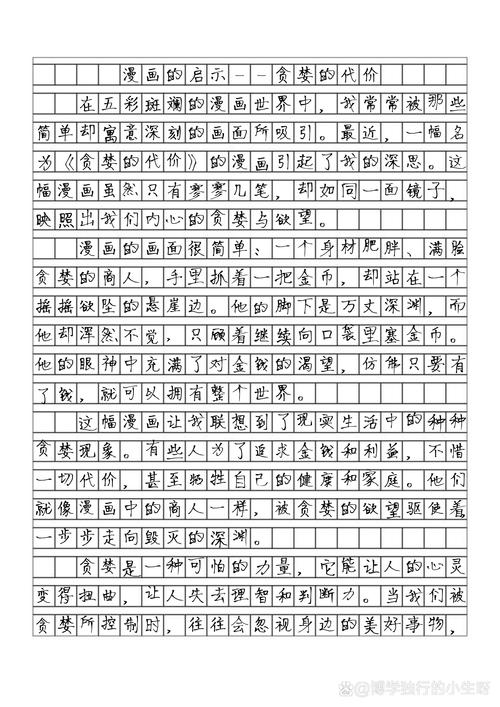 漫画的启示--贪婪的代价
在五彩斑斓的漫画世界中，我常常被那些
简单却寓意深刻的画面所吸引。最近，一幅名
为《贪婪的代价》的漫画引起了我的深思。这
幅漫画虽然只有寥寥几笔，却如同一面镜子，
映照出我们内心的贪婪与欲望。
漫画的画面很简单、一个身材肥胖、满脸
贪婪的商人，手里抓着一把金币，却站在一个
摇摇欲坠的悬崖边。他的脚下是万丈深渊，而
他却浑然不觉，只顾着继续向口袋里塞金币。
他的眼神中充满了对金钱的渴望，仿佛只要有
了钱，就可以拥有整个世界。
这幅漫画让我联想到了现实生活中的种种
贪婪现象。有些人为了追求金钱和利益，不惜
一切代价，甚至牺牲自己的健康和家庭。他们
就像漫画中的商人一样，被贪婪的欲望驱使着
一步步走向毁灭的深渊。
贪婪是一种可怕的力量，它能让人的心灵
变得扭曲，让人失去理智和判断力。当我们被
贪婪所控制时，往往会忽视身边的美好事物，
@博学独行的小生呀